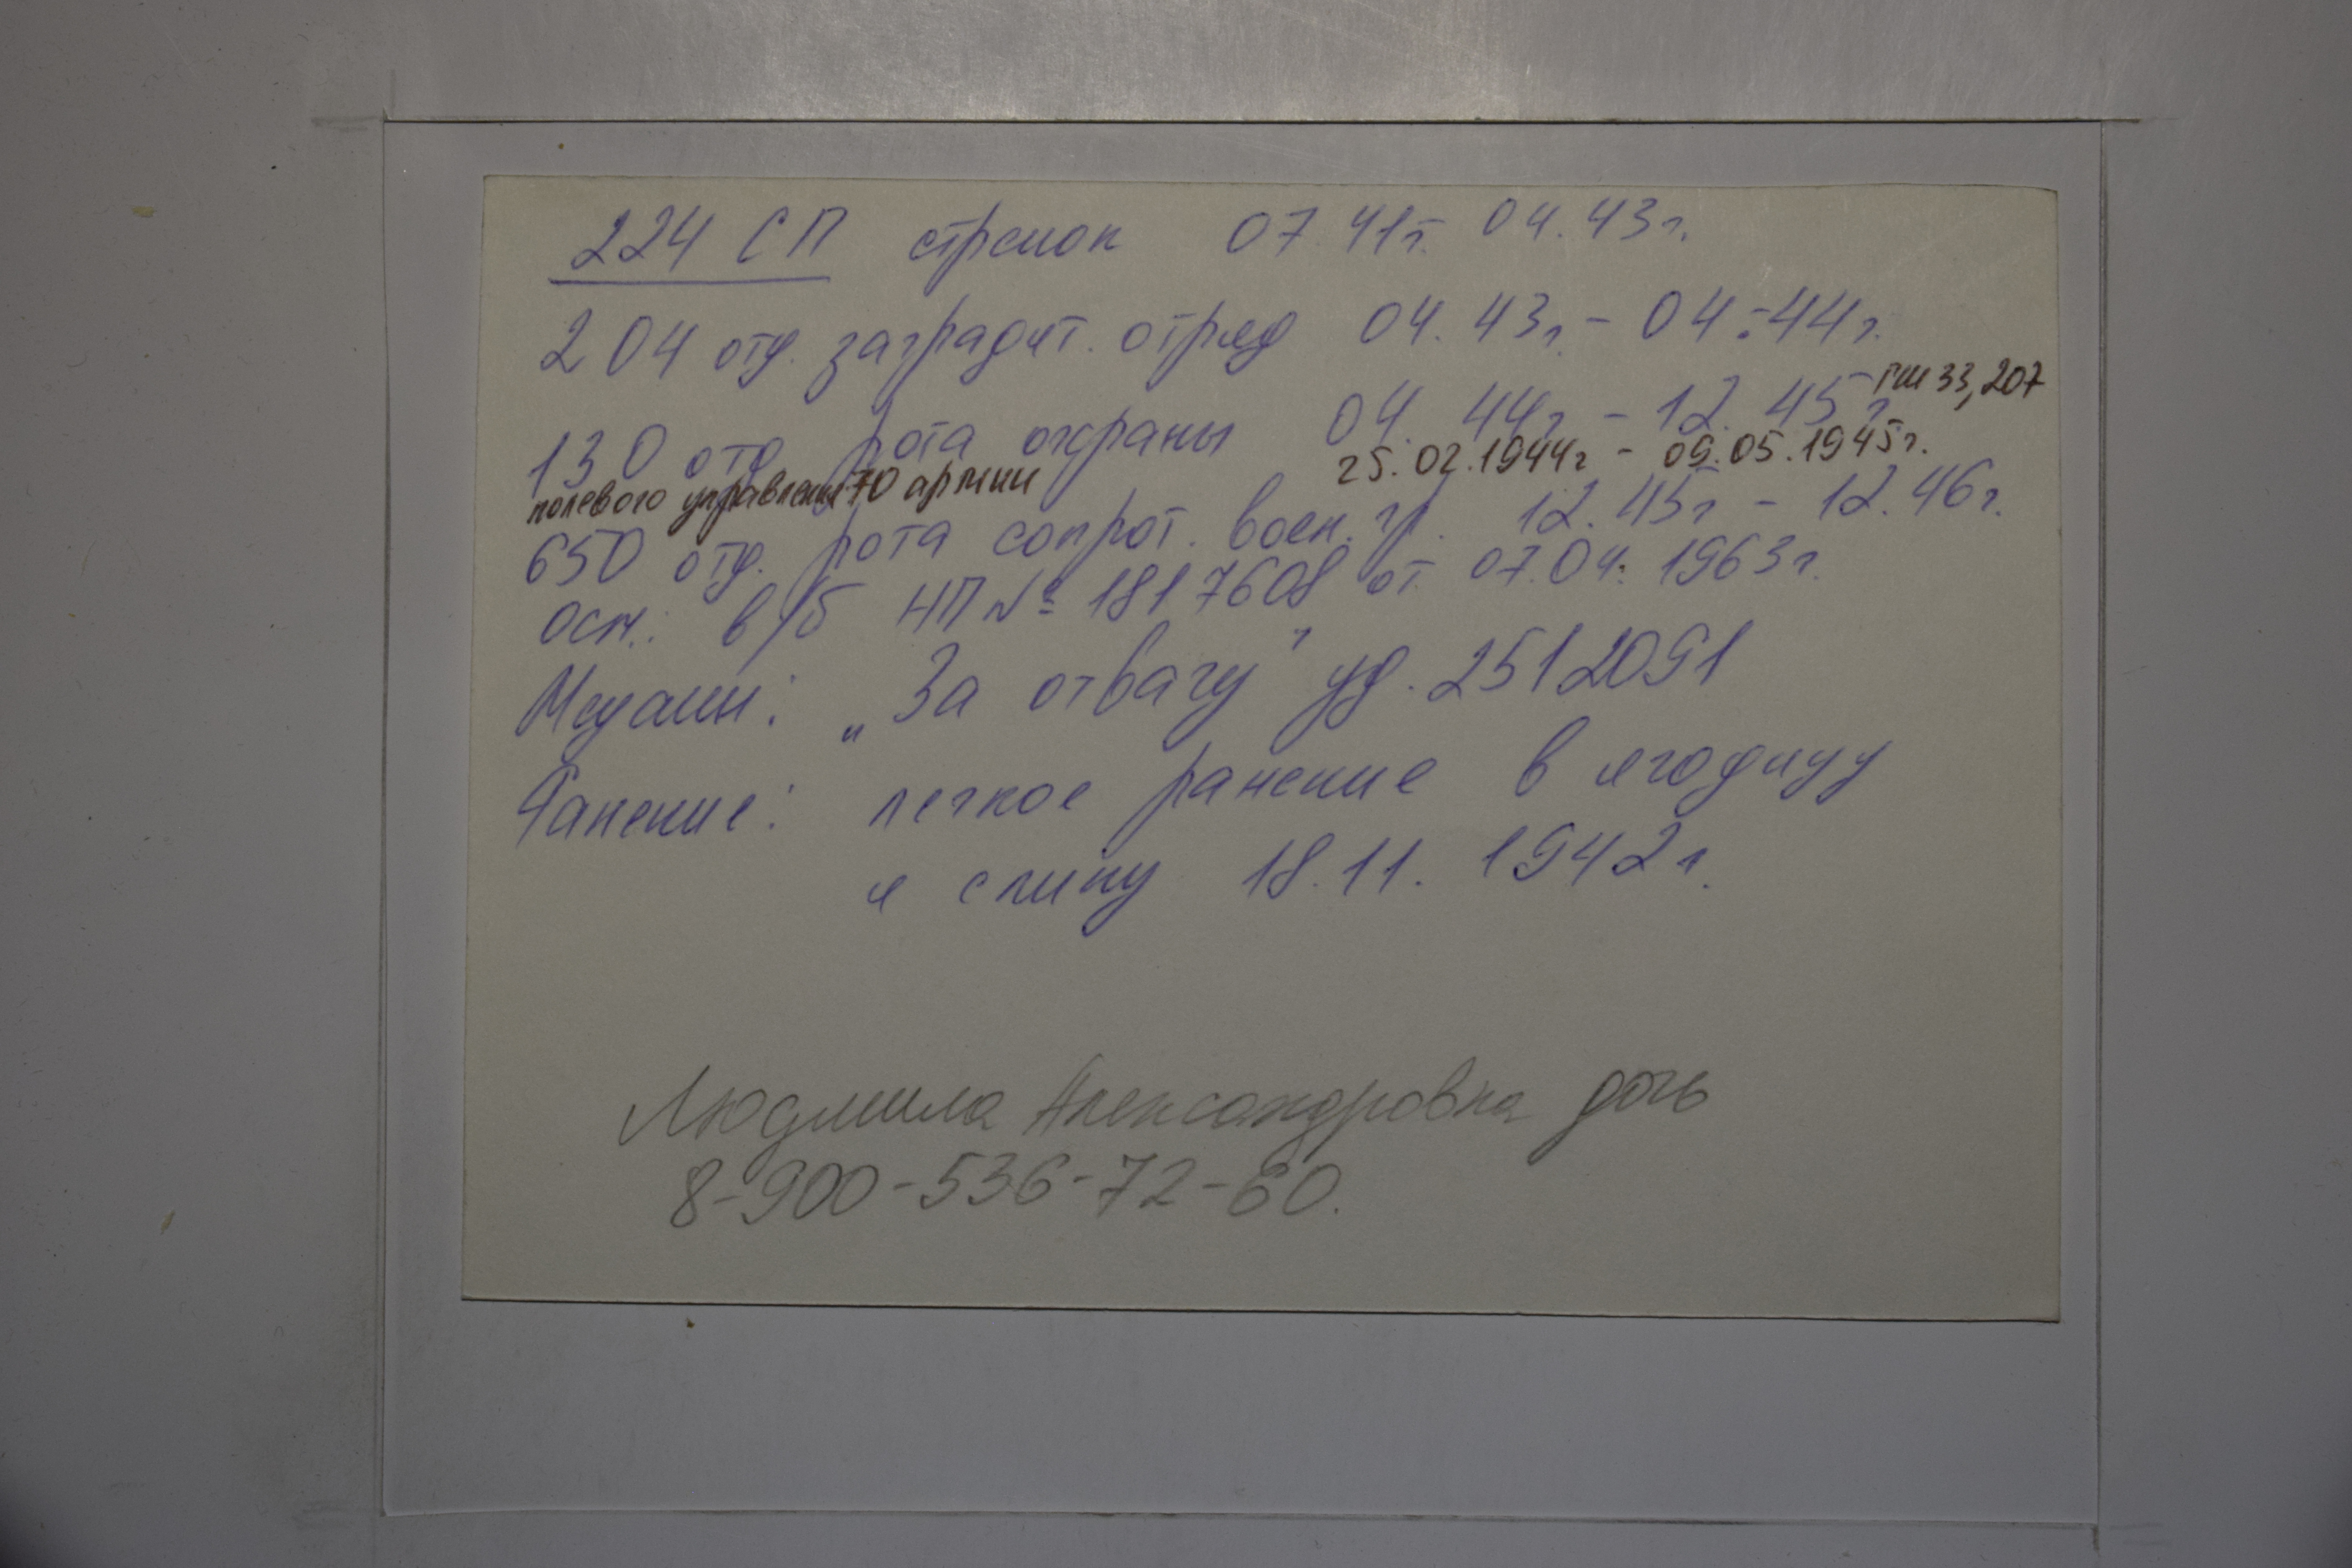 224 СП стрелок 07 41г. 04.43г.
204 отд. заградит. отряд 04.43г. - 04.-44г.
ГШ 33, 207
130 отд рота охраны 04. 44г - 12. 45г
полевого управления 70 армии 25.02.1944г - 09.05.1945г.
650 отд. рота сопрот. воен. гр. 12.45г - 12.46г.
осн.: в/б НП № 1817608 от 07.04. 1963г.
Медали: „За отвагу" уд. 2512091
Ранение: легкое ранение в ягодицу
и спину 18.11. 1942г.
Людмила Александровна дочь
8-900-536-72-60.